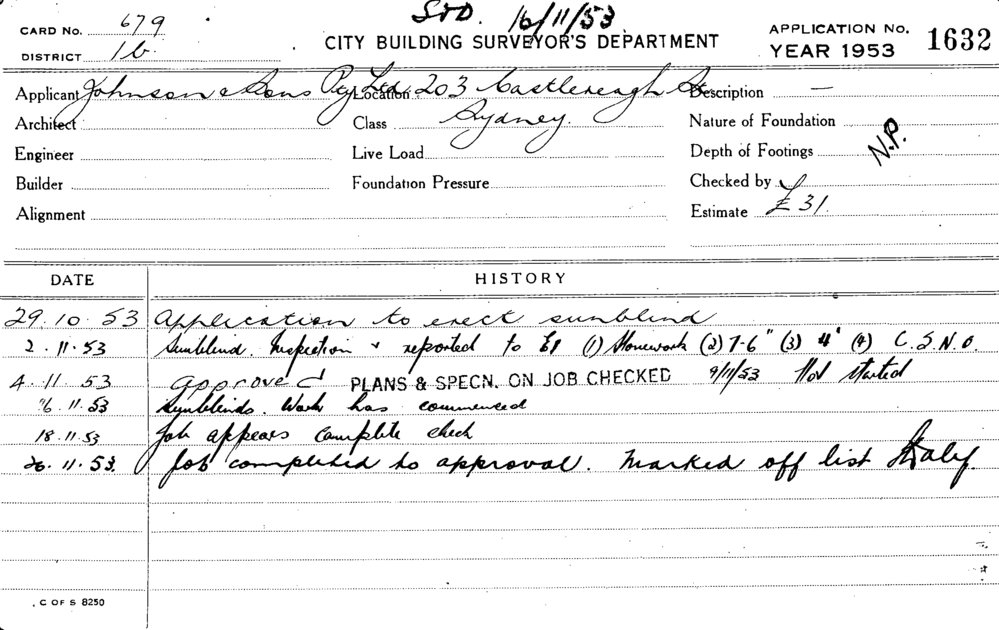 CARD No. 679 STD. 16/11/53 APPLICATION No. 1632
DISTRICT 16 CITY BUILDING SURVEYOR'S DEPARTMENT YEAR 1953
Applicant Johnson & Sons Pty Ltd Location 203 Castlereagh St Description —
Architect Class Sydney. Nature of Foundation
Engineer Live Load Depth of Footings N.P.
Builder Foundation Pressure Checked by
Alignment Estimate £ 31.
DATE HISTORY
29.10.53 Application to erect sunblind
2.11.53 Sunblind. Inspection & reported to (1) (2) 7-6" (3) 4' (4) C.S.N.O.
4.11.53 Approved PLANS & SPECN. ON JOB CHECKED 9/11/53 Not started
16.11.53 Sunblinds. Work has commenced
18.11.53 Job appears complete check
26.11.53. Job completed to approval. Marked off list
C OF S 8250